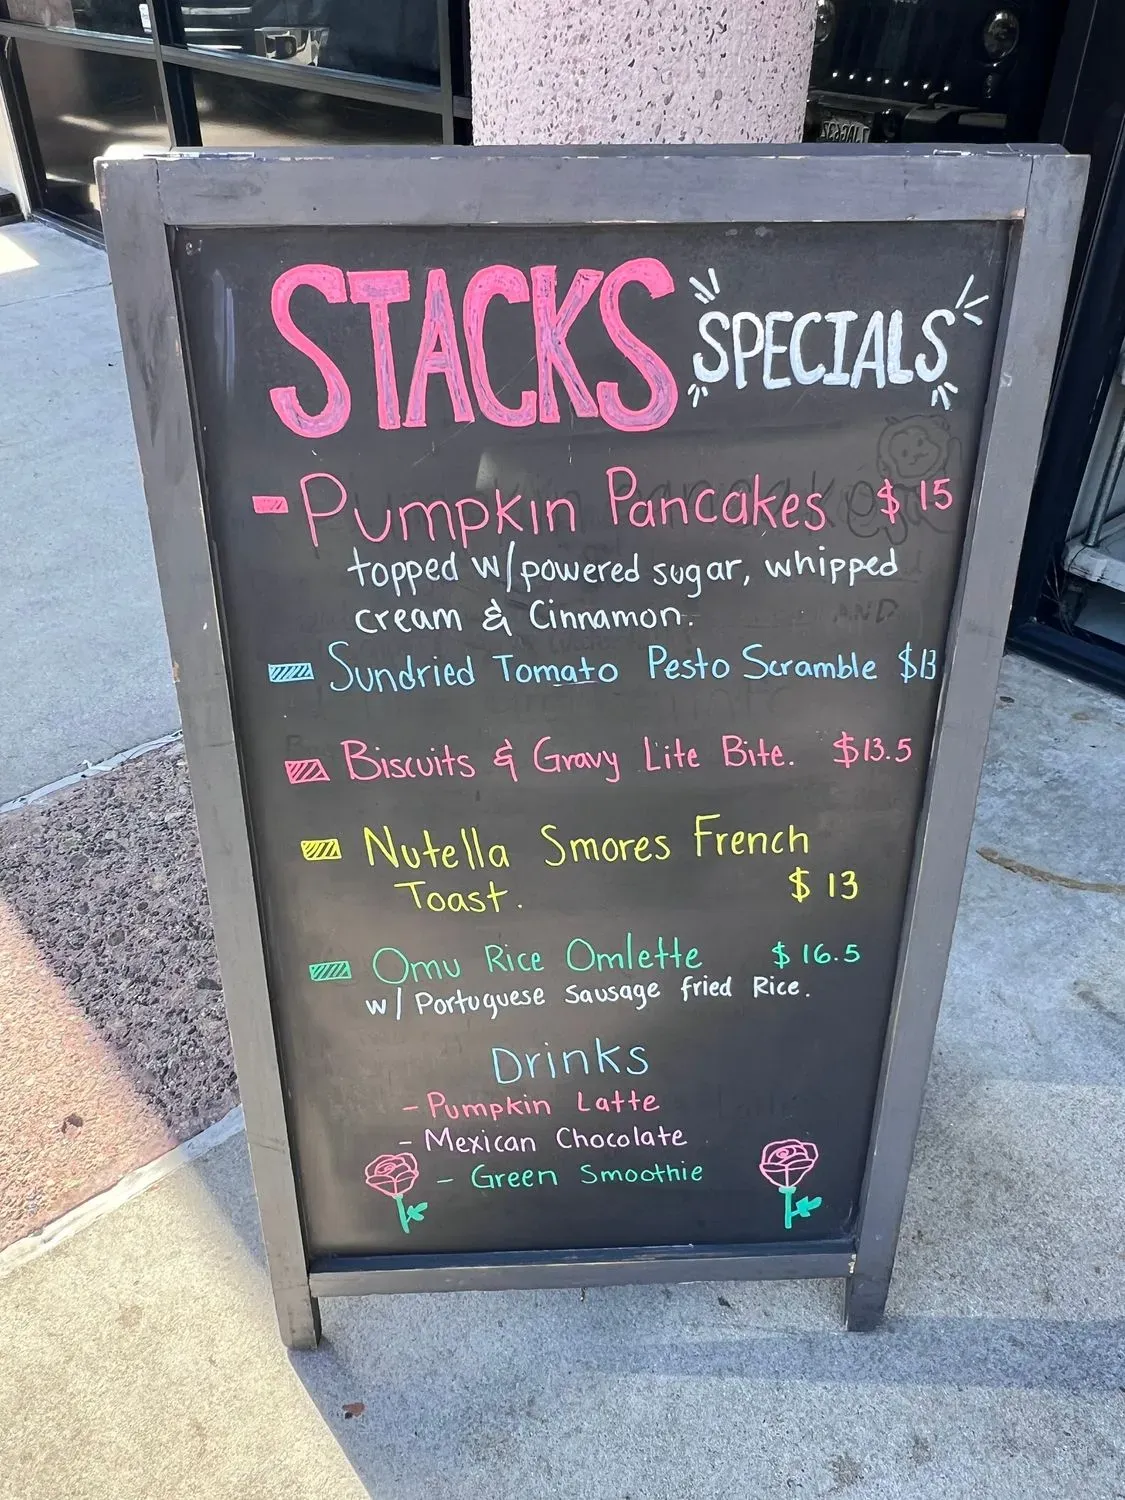 STACKS SPECIALS
- Pumpkin Pancakes $15
topped w/powered sugar, whipped
cream & Cinnamon.
Sundried Tomato Pesto Scramble $13
Biscuits & Gravy Lite Bite. $13.5
Nutella Smores French
Toast. $13
Omu Rice Omlette $16.5
w/ Portuguese Sausage fried Rice.
Drinks
- Pumpkin Latte
- Mexican Chocolate
- Green Smoothie